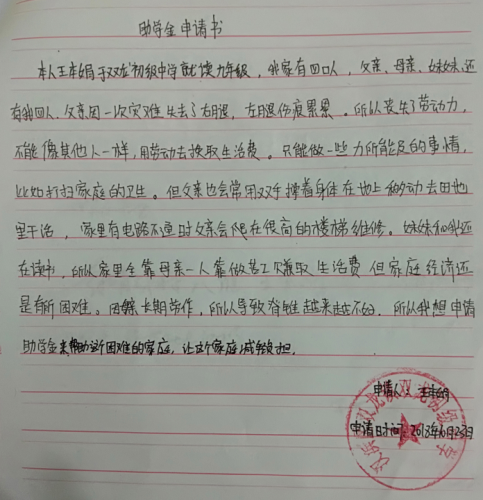 助学金申请书
本人王本娟于双龙初级中学就读九年级，我家有四口人，父亲、母亲、妹妹还
有我四人．父亲因一次灾难失去了右腿，左腿伤痕累累。所以丧失了劳动力，
不能像其他人一样，用劳动去换取生活费。只能做一些力所能及的事情，
比如打扫家庭的卫生。但父亲也会常用双手撑着身体在地上移动去田地
里干活，家里有电路不通时父亲会爬在很高的楼梯维修。妹妹和我还
在读书，所以家里全靠母亲一人靠做苦工赚取生活费但家庭经济还
是有所困难。因长期劳作，所以导致脊椎越来越不好．所以我想申请
助学金来帮助这个困难的家庭，让这个家庭减轻负担．
申请人：
申请时间：2013年10月23日
双龙 双龙初级中学